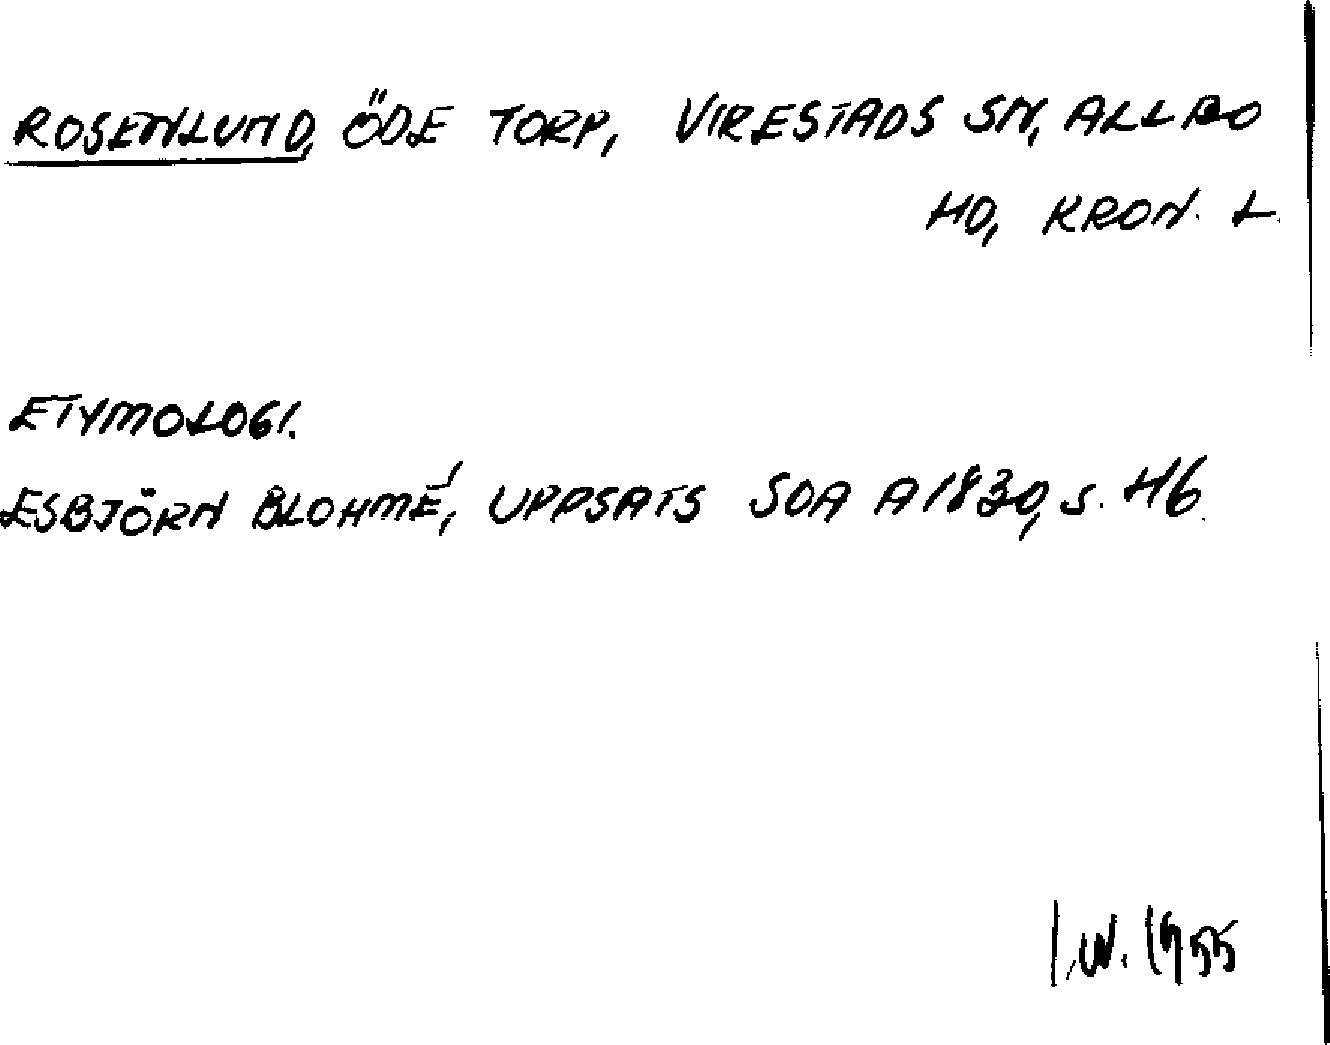 ROSENLUND, ÖDE TORP, VIRESTADS SN, ALLBO
HD, KRON. L.
ETYMOLOGI.
ESBJÖRN BLOHMÉ, UPPSATS SOA A1830, S. 46.
I.W. 1955